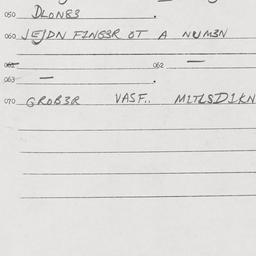 050 DLONG3 .
060 JEJDN FING3R OT A NUM3N
061 062 —
063 — .
070 GROB3R VASF.. MLTLSD1KN